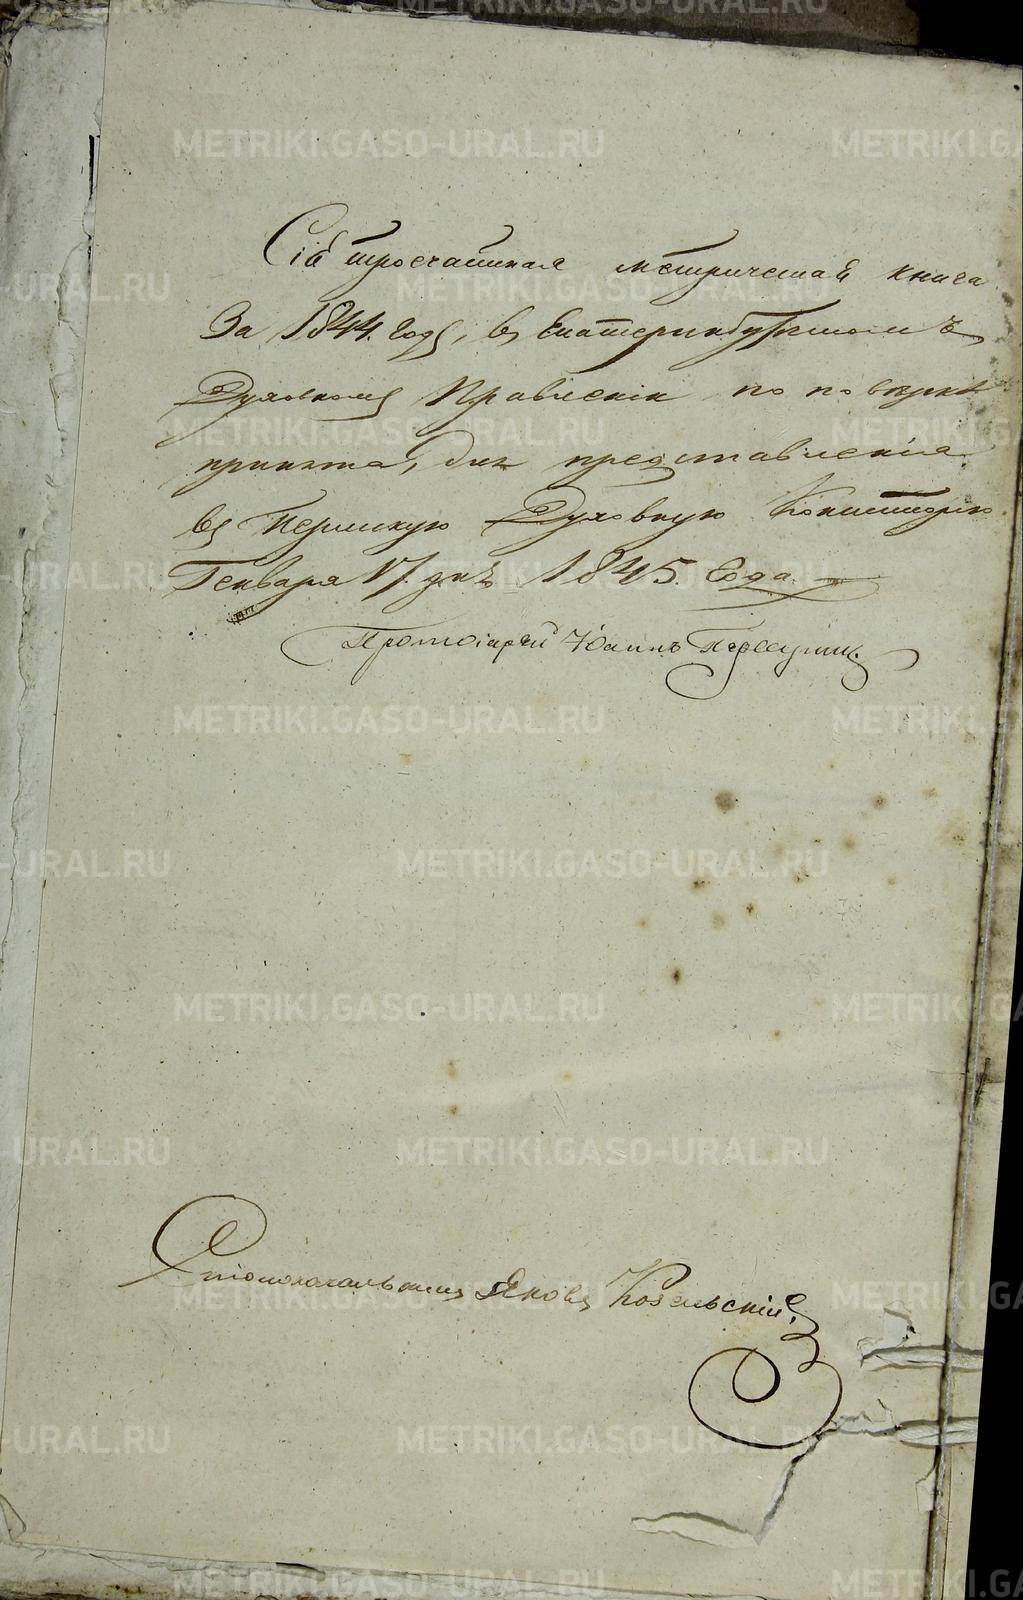 Сія троечастная метрическая книга
За 1844. Годъ, въ Екатеринбургскомъ
Духовномъ Правленіи по поверке
принята, для представленія
въ Пермскую Духовную Консисторію
Генваря 17. дня 1845. Года.
Протоіерей Іоаннъ
Столоначальникъ Яковъ Козельскій.
METRIKI.GASO-URAL.RU